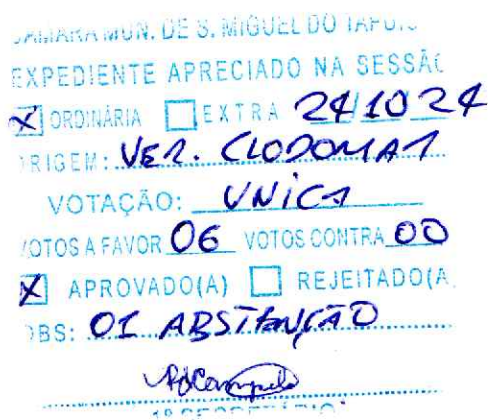 CÂMARA MUN. DE S. MIGUEL DO TAPUIO
EXPEDIENTE APRECIADO NA SESSÃO
X ORDINÁRIA EXTRA 24 10 24
ORIGEM: VER. CLODOMAR
VOTAÇÃO: UNICA
VOTOS A FAVOR 06 VOTOS CONTRA 00
X APROVADO(A) REJEITADO(A
OBS: 01 ABSTENÇÃO
1º SECRETÁRIO